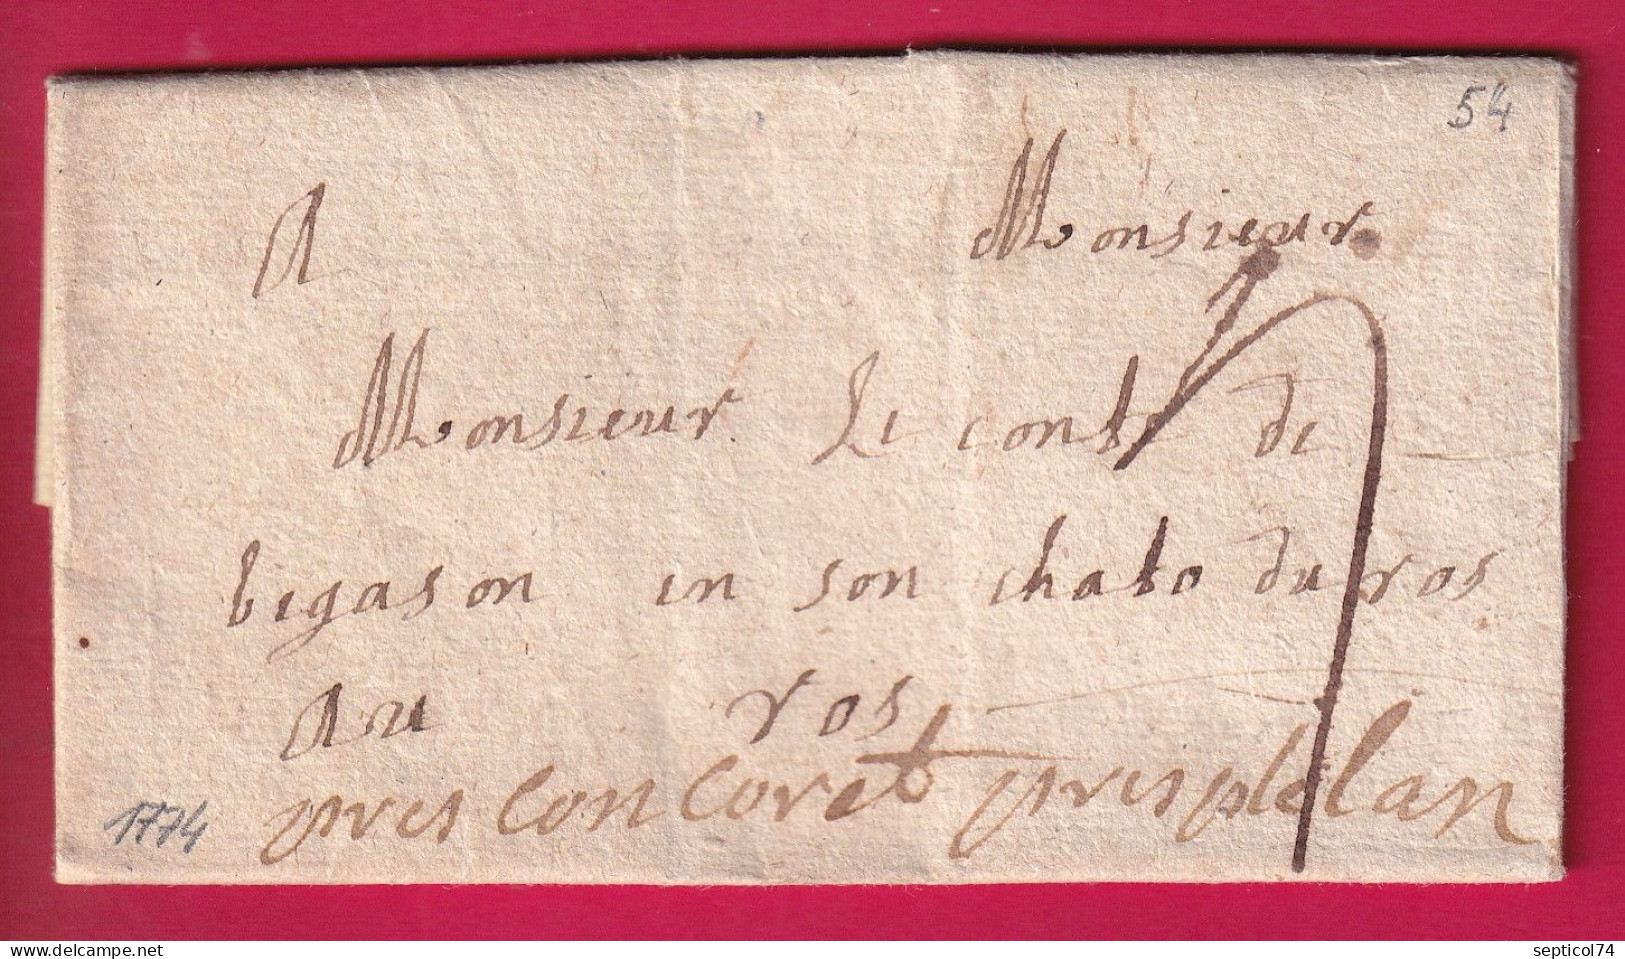 54
A Monsieur
Monsieur Le conte de
begason en son chato du ros
Au ros
pres concoret pres plelan
1774
7
www.delcampe.net
septicol74